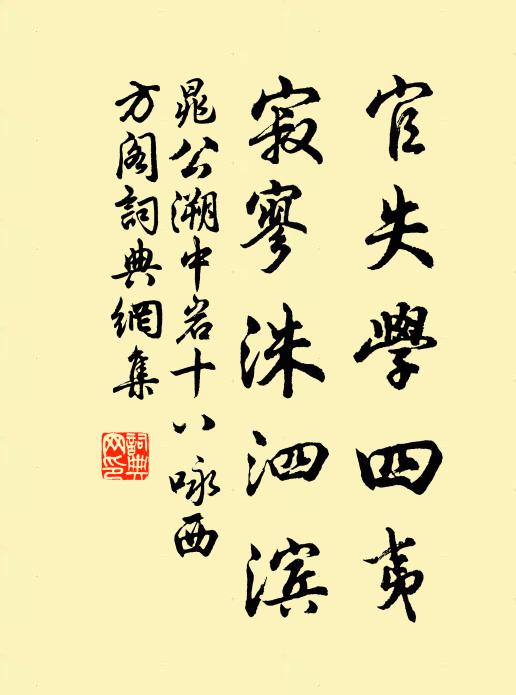 官失學四夷
寂寥洙泗滨
晁公溯中岩十八咏西
方阁詞典網集
詞典
网印